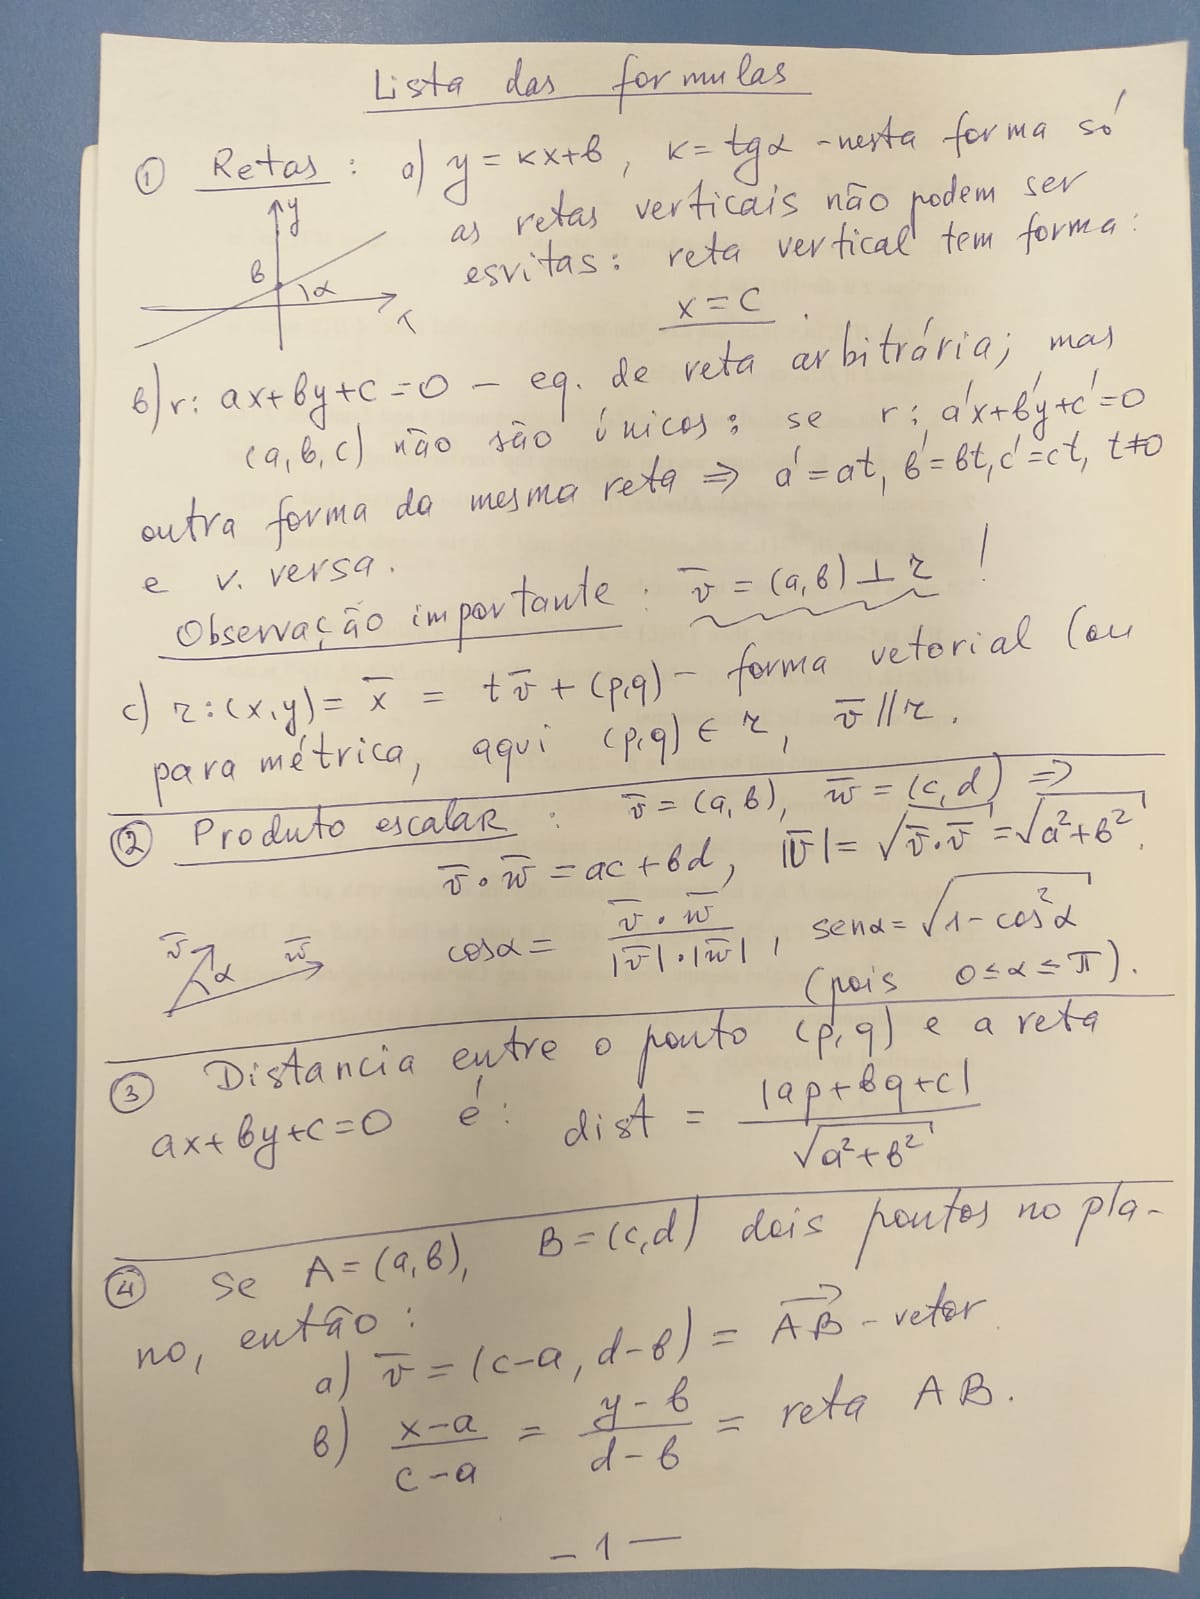 Lista das formulas
① Retas: a) y = kx+b, k = tgα - nesta forma só
as retas verticais não podem ser
esvitas: reta vertical tem forma:
x = c.
y
b
α
b) r: ax+by+c=0 - eq. de reta arbitrária; mas
(a,b,c) não são únicos: se r: a'x+b'y+c'=0
outra forma da mesma reta ⇒ a'=at, b'=bt, c'=ct, t≠0
e v. versa.
Observação importante: v̅ = (a,b) ⊥ r !
c) r: (x,y) = x̅ = t v̅ + (p,q) - forma vetorial (ou
para métrica, aqui (p,q) ∈ r, v̅ // r.
② Produto escalar: v̅ = (a,b), w̅ = (c,d) ⇒
v̅ · w̅ = ac + bd, |v̅| = √(v̅·v̅) = √(a²+b²).
v̅ α w̅ cosα = (v̅ · w̅)/(|v̅|·|w̅|), senα = √(1-cos²α)
(pois 0 ≤ α ≤ π).
③ Distancia entre o ponto (p,q) e a reta
ax+by+c=0 é: dist = |ap+bq+c|/√(a²+b²)
④ Se A=(a,b), B=(c,d) dois pontos no pla-
no, então:
a) v̅ = (c-a, d-b) = A⃗B⃗ - vetor
b) (x-a)/(c-a) = (y-b)/(d-b) = reta AB.
- 1 -